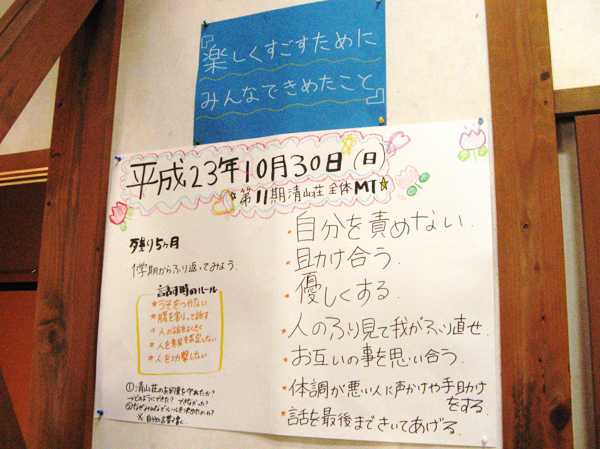 『楽しくすごすために
みんなできめたこと』
平成23年10月30日(日)
☆第11期清山荘全体MT☆
残り5ヶ月
1学期からふり返ってみよう。
話す時のルール
★うそをつかない
★腹を割って話す
★人の話をよくきく
★人を攻撃しない
・自分を責めない。
・助け合う。
・優しくする。
・人のふり見て我がふり直せ。
・お互いの事を思い合う。
・体調が悪い人に声かけや手助け
をする。
・話を最後まできいてあげる。